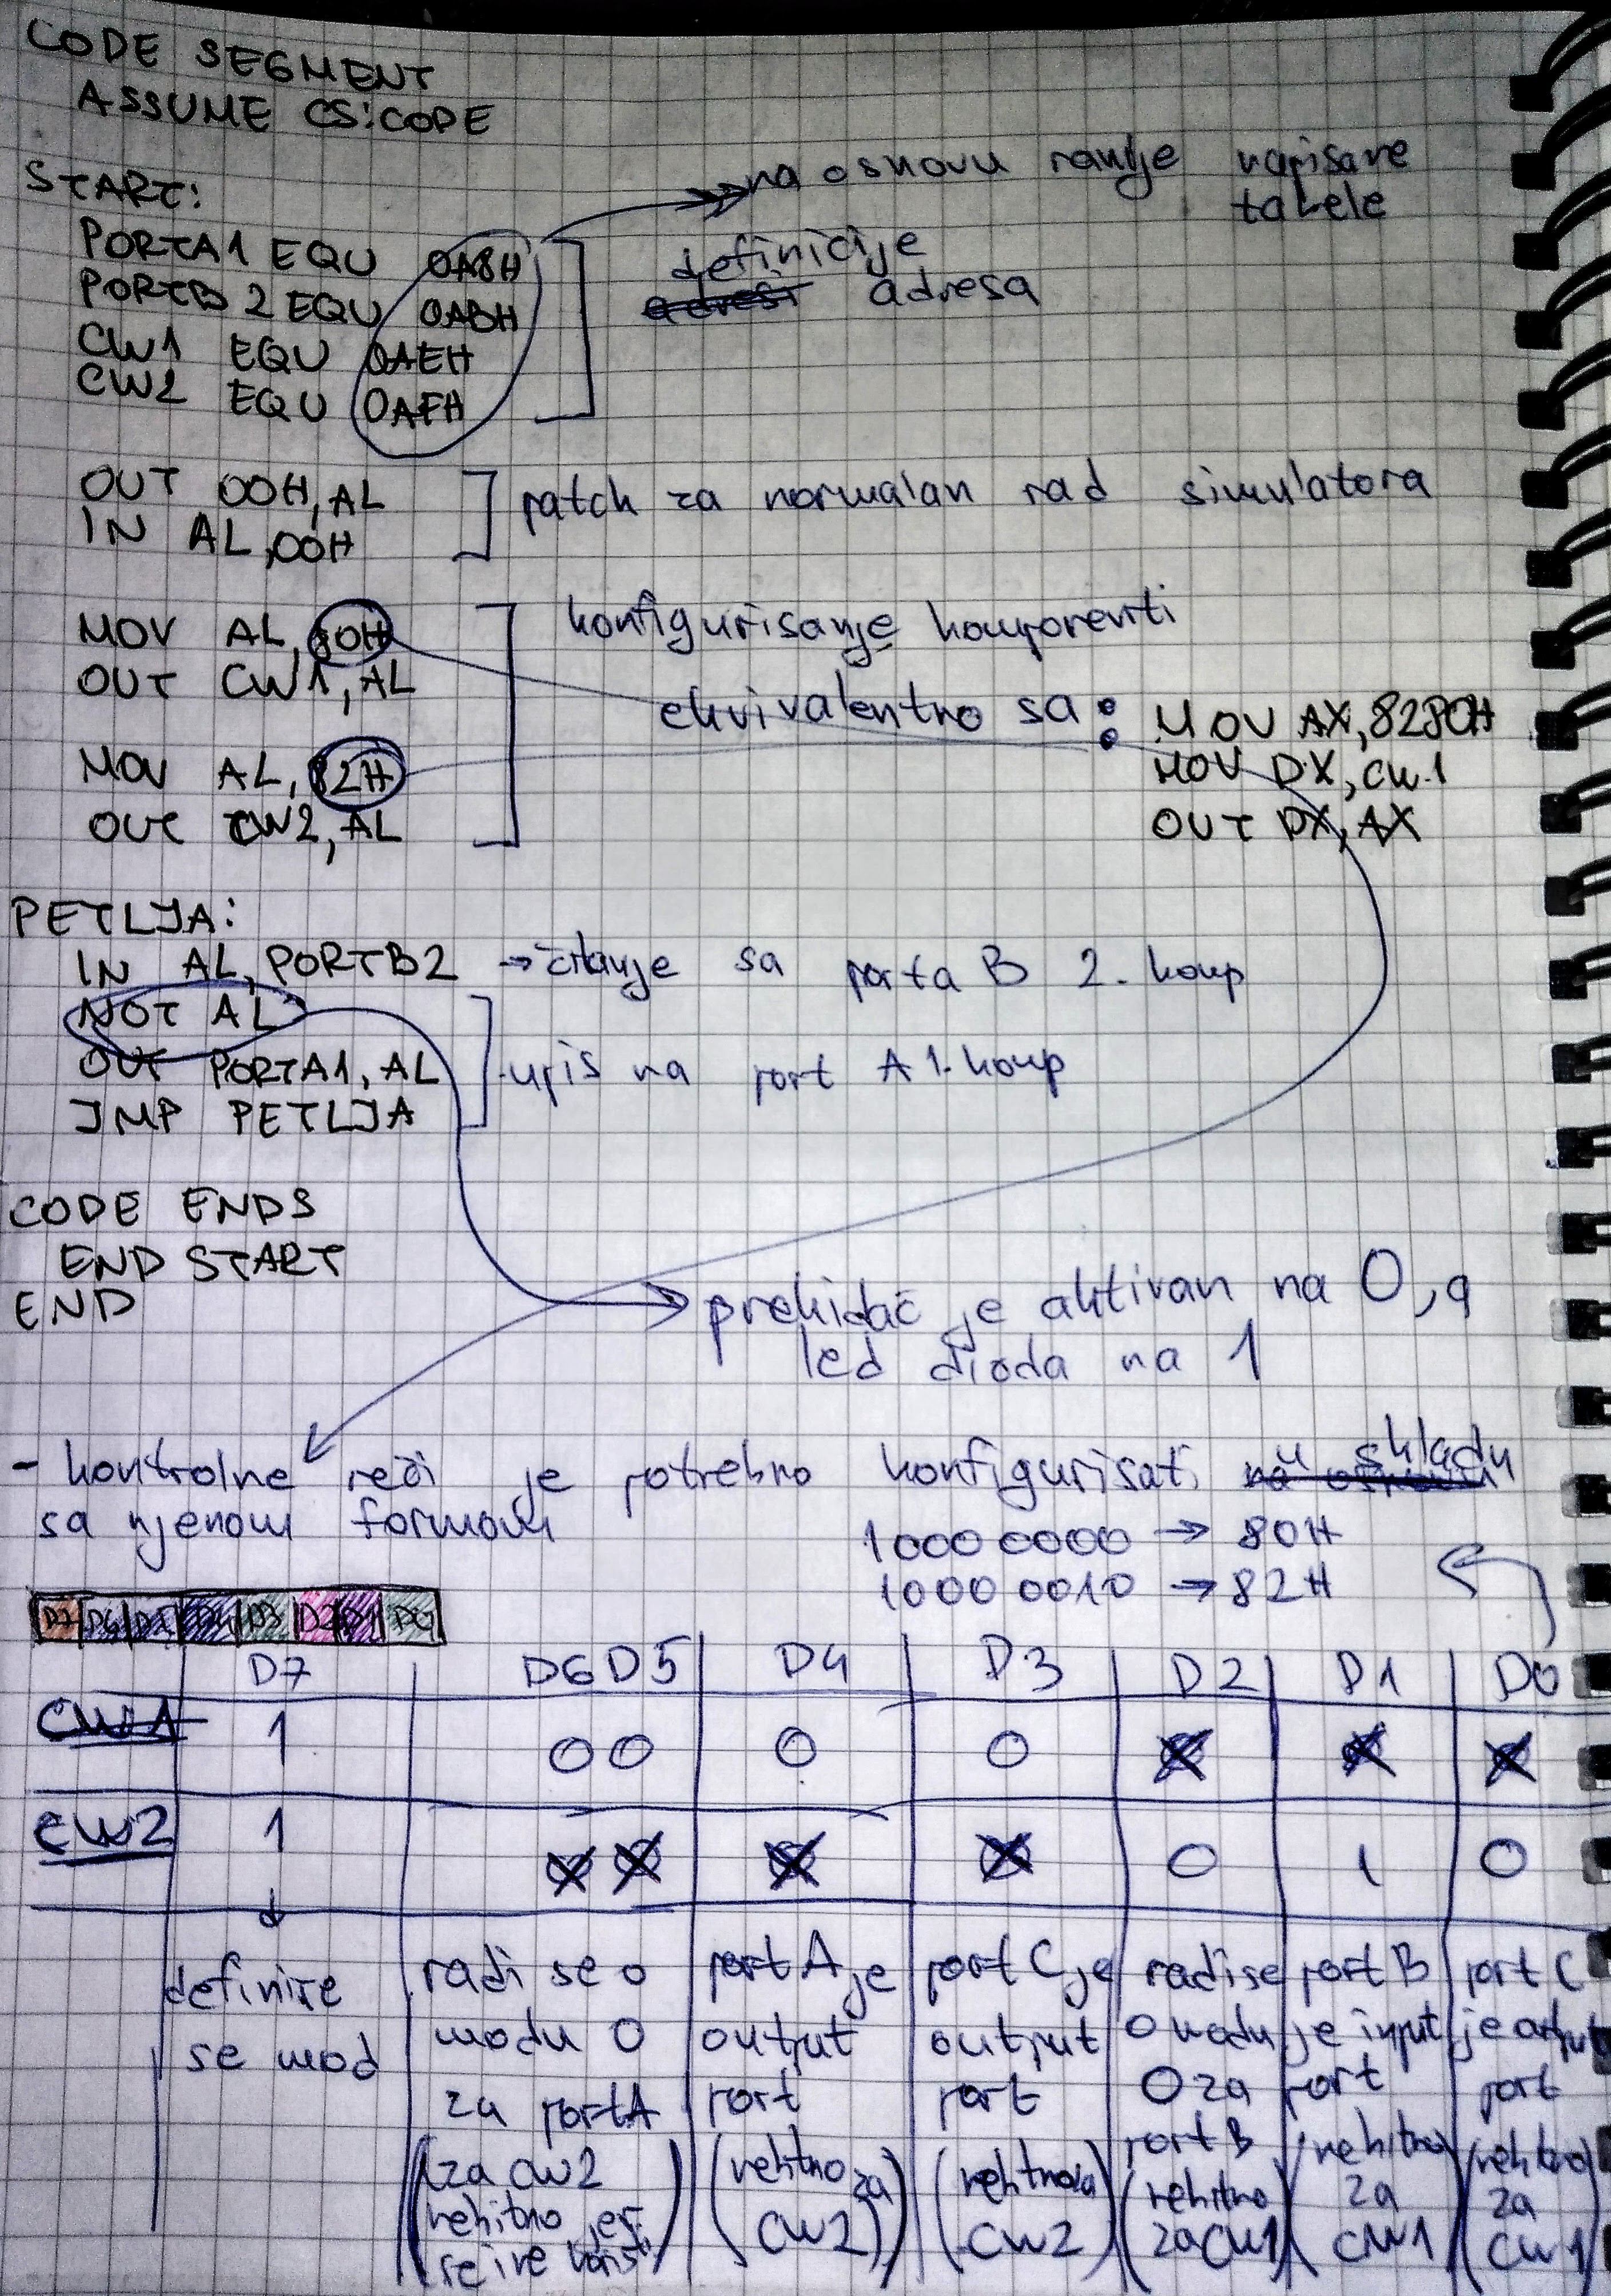 CODE SEGMENT
ASSUME CS:CODE
START:
na osnovu ranije napisane
tabele
PORTA1 EQU 0A8H
PORTB2 EQU 0ABH
CW1 EQU 0AEH
CW2 EQU 0AFH
definicije
adresa
OUT 00H,AL
IN AL,00H
patch za normalan rad simulatora
MOV AL,80H
OUT CW1,AL
konfigurisanje komponenti
ekvivalentno sa:
MOV AX,8280H
MOV DX,CW1
OUT DX,AX
MOV AL,82H
OUT CW2,AL
PETLJA:
IN AL,PORTB2 → čitanje sa porta B 2. komp
NOT AL
OUT PORTA1,AL
upis na port A 1. komp
JMP PETLJA
CODE ENDS
END START
END
prekidač je aktivan na 0, a
led dioda na 1
- kontrolne reči je potrebno konfigurisati u skladu
sa njenom formom
1000 0000 → 80H
1000 0010 → 82H
D7 D6 D5 D4 D3 D2 D1 D0
D7 D6 D5 D4 D3 D2 D1 D0
CW1 1 00 0 0
CW2 1 0 1 0
definiše
se mod
radi se o
modu 0
za port A
(za CW2
nebitno jer
port A je
output
port
(nebitno za
CW2)
port C je
output
port
(nebitno za
CW2)
radi se
o modu
0 za
port B
(nebitno
za CW1)
port B
je input
port
(nebitno
za
CW1)
port C
je output
port
(nebitno
za
CW1)